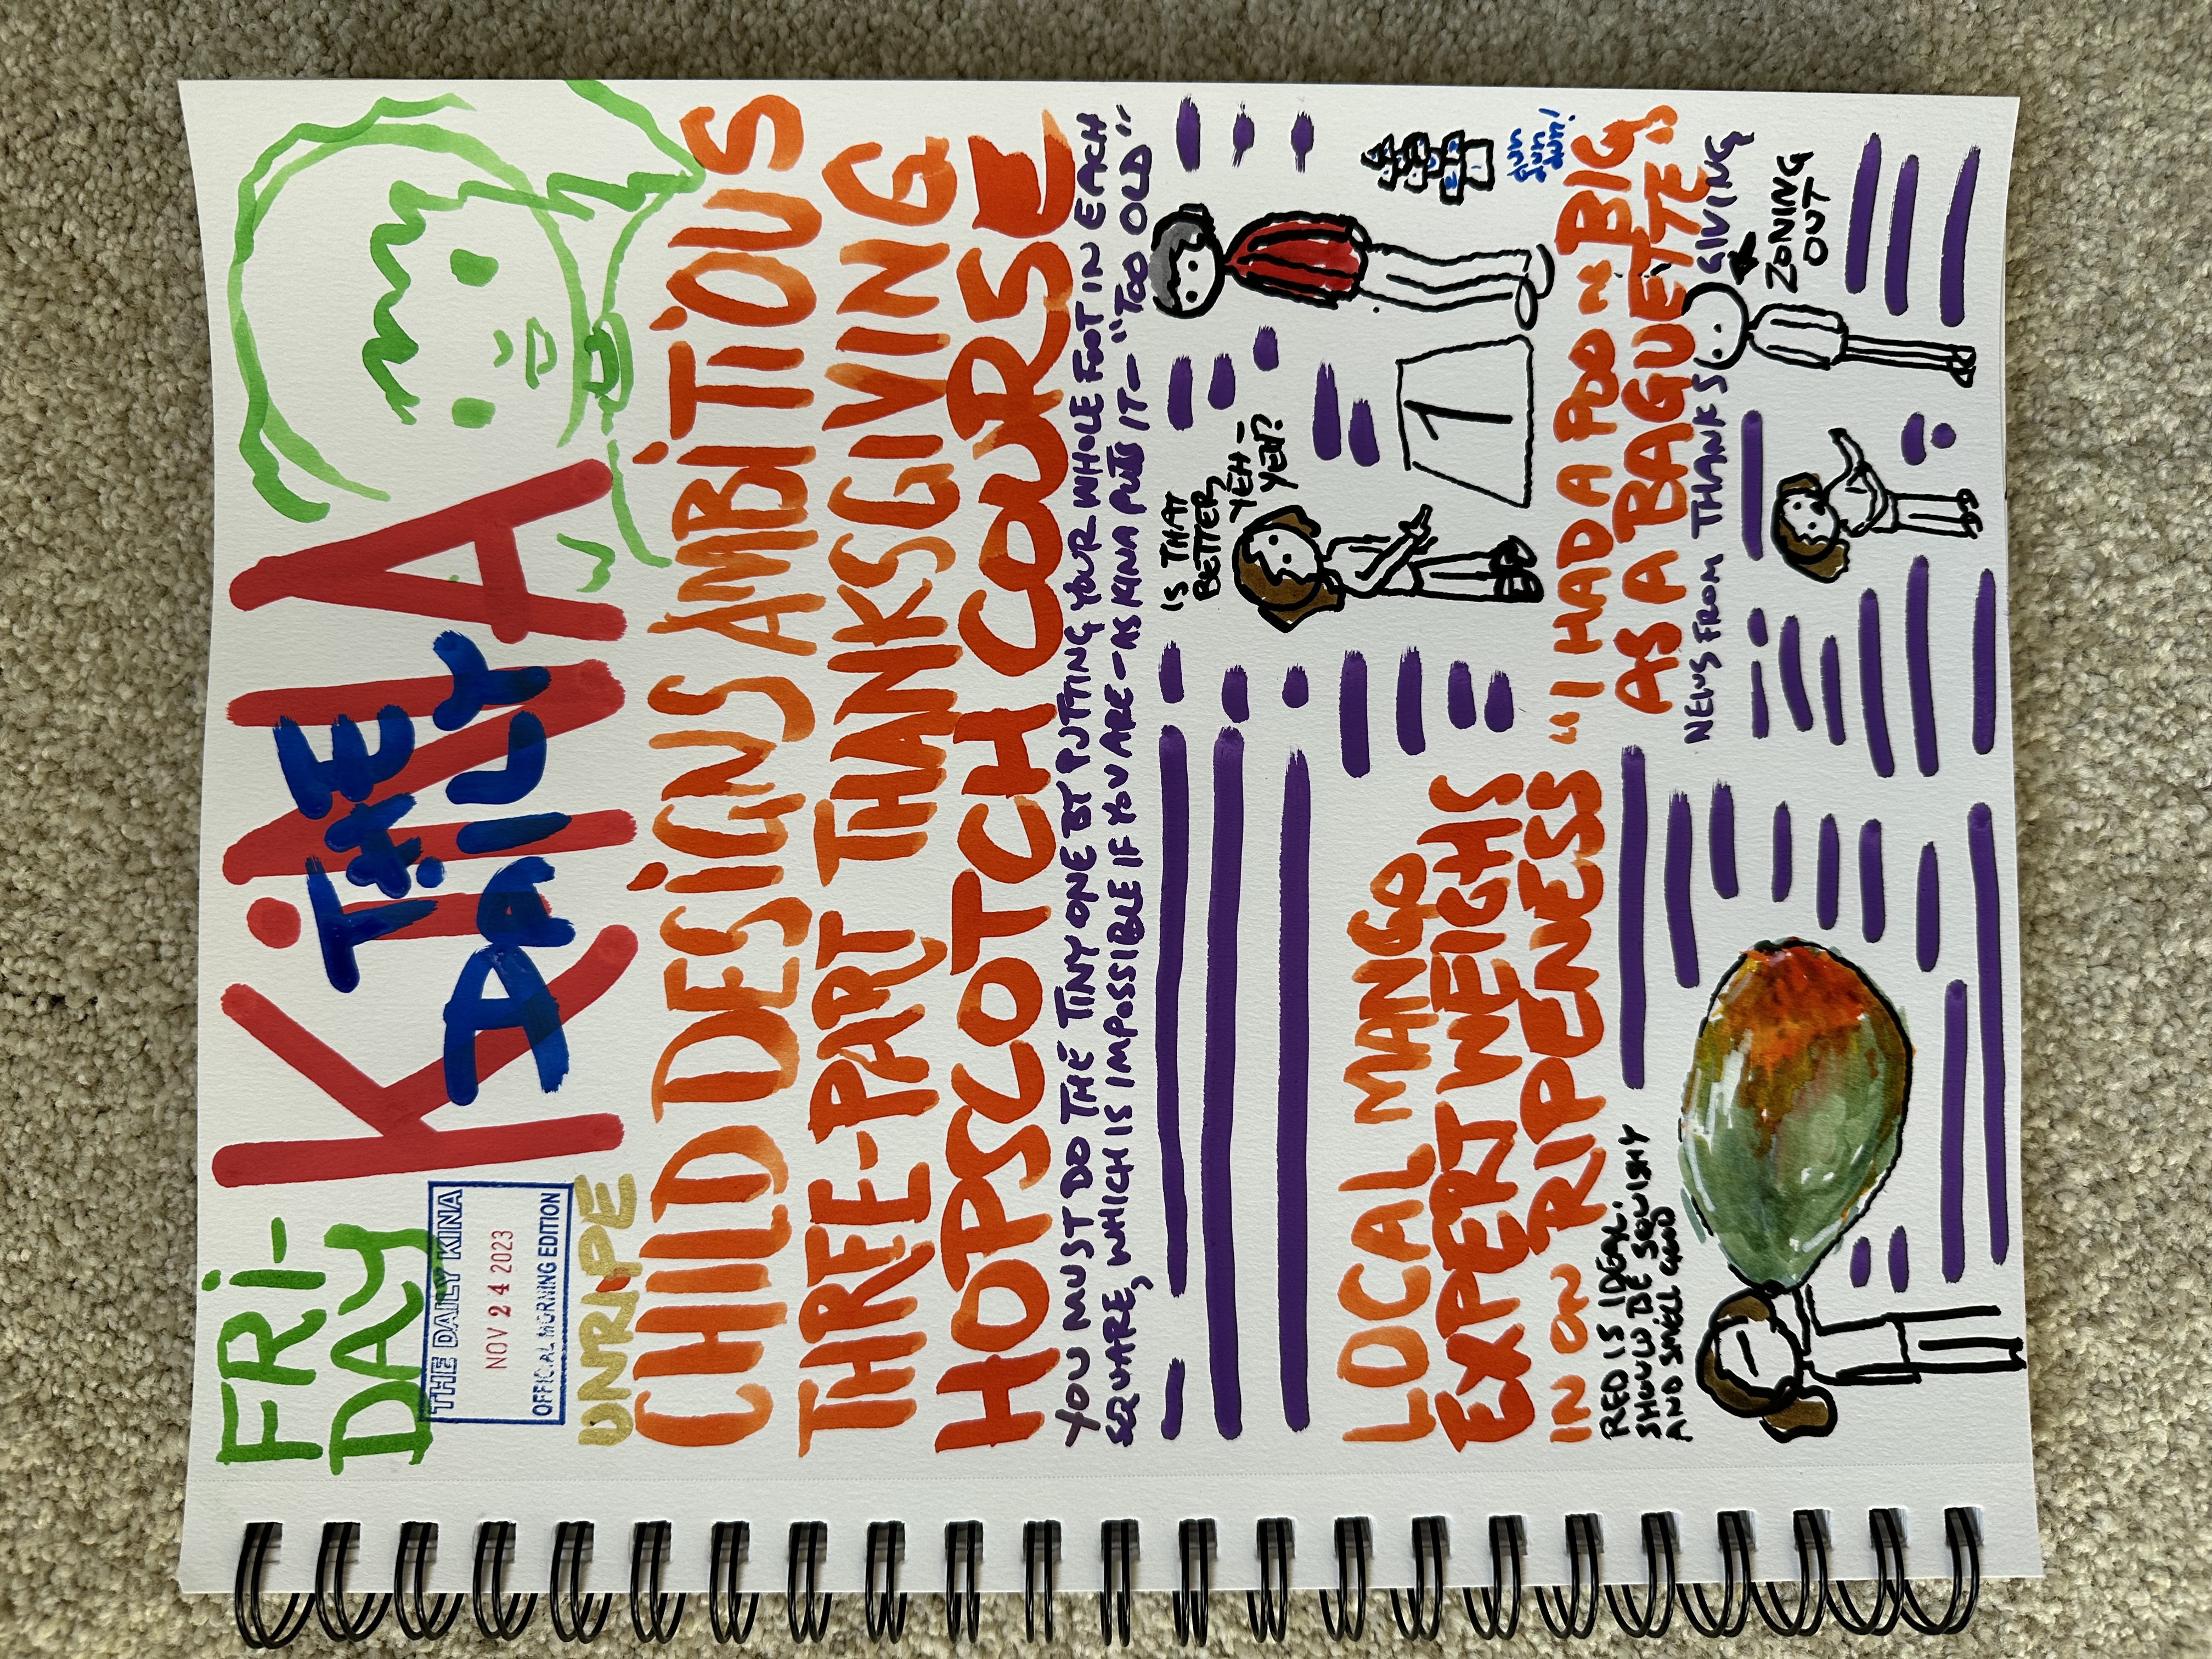 FRI-
DAY
THE DAILY KINA
NOV 24 2023
OFFICIAL MORNING EDITION
UNRIPE
KINA
THE
DAILY
CHILD DESIGNS AMBITIOUS
THREE-PART THANKSGIVING
HOPSCOTCH COURSE
YOU MUST DO THE TINY ONE BY PUTTING YOUR WHOLE FOOT IN EACH
SQUARE, WHICH IS IMPOSSIBLE IF YOU ARE - AS KINA PUTS IT - "TOO OLD"
IS THAT
BETTER,
YEH-
YEH?
1
fun
fun
fun!
LOCAL MANGO
EXPERT WEIGHS
IN ON RIPENESS
RED IS IDEAL.
SHOULD BE SQUISHY
AND SMELL GOOD
"I HAD A POO BIG
AS A BAGUETTE"
NEWS FROM THANKSGIVING
ZONING
OUT